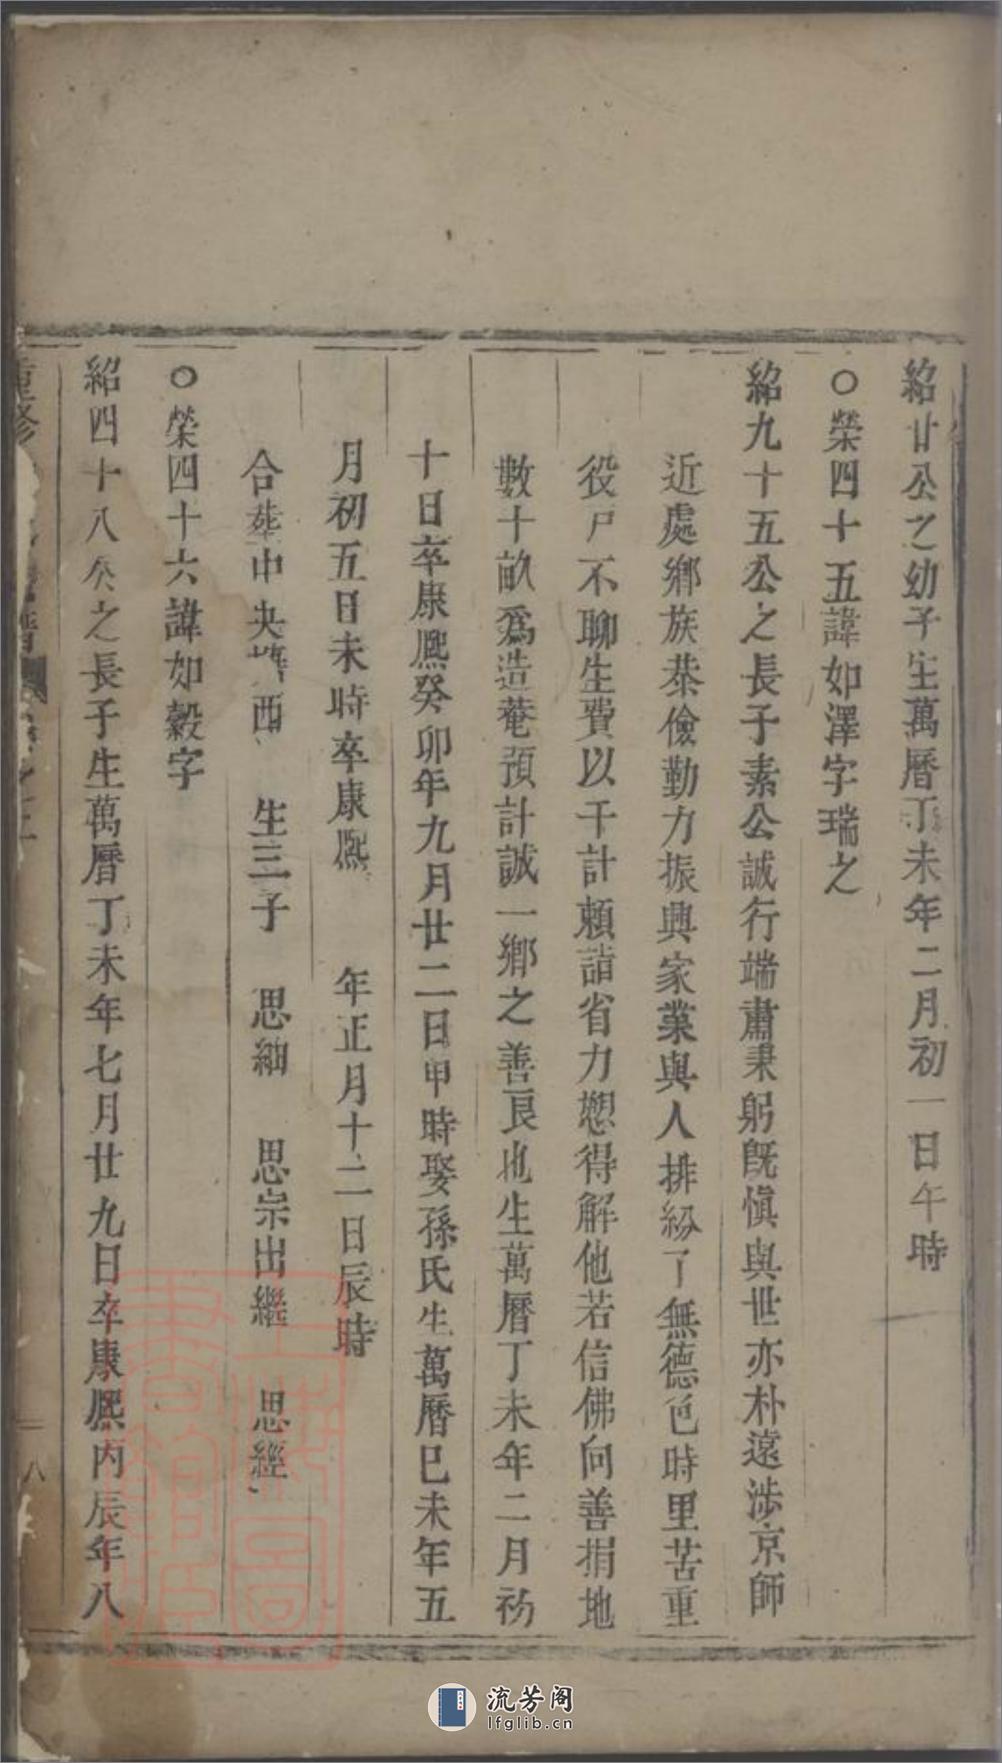 紹廿公之幼子生萬曆丁未年二月初一日午時
○榮四十五諱如澤字瑞之
紹九十五公之長子素公誠行端肅秉躬旣愼與世亦朴遠涉京師
近處鄉族恭儉勤力振興家業與人排紛了無德色時里苦重
役戸不聊生費以千計賴詣省力懇得解他若信佛向善捐地
數十畝爲造菴預計誠一鄉之善良也生萬曆丁未年二月初
十日卒康熈癸卯年九月廿二日申時娶孫氏生萬曆己未年五
月初五日未時卒康熈 年正月十二日辰時
合塟中央塘西 生三子 思紬 思宗出繼 思經
○榮四十六諱如穀字
紹四十八公之長子生萬曆丁未年七月廿九日卒康熈丙辰年八
重修 譜 之三 八
上海圖書館藏
流芳阁
lfglib.cn